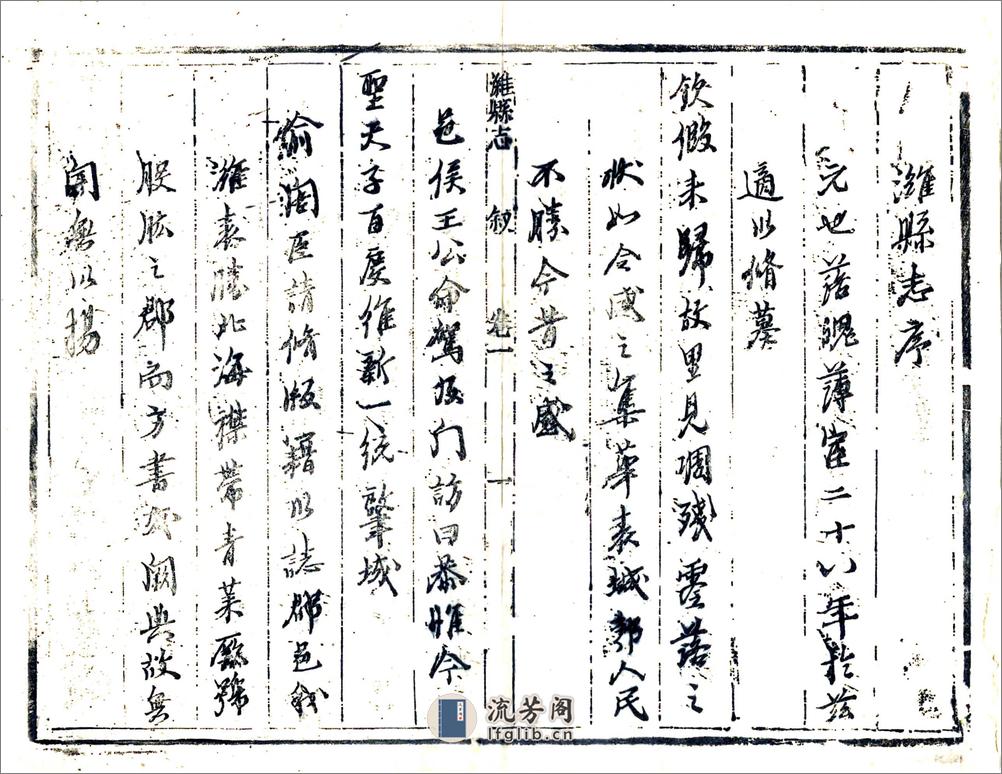 濰縣志序
元也落魄薄宦二十八年於茲
適以脩墓
欽假來歸故里見凋殘零落之
狀如令威之集華表城郭人民
不勝今昔之感
濰縣志 敘 卷一 一
邑侯王公命駕及門訪曰恭惟今
聖天子百度維新一統肇域
俞閣臣請脩版籍以誌郡邑我
濰表陸北海襟帶青萊厥號
股肱之郡而方書攸闕典故無
聞無以揚
流芳阁
lfglib.cn